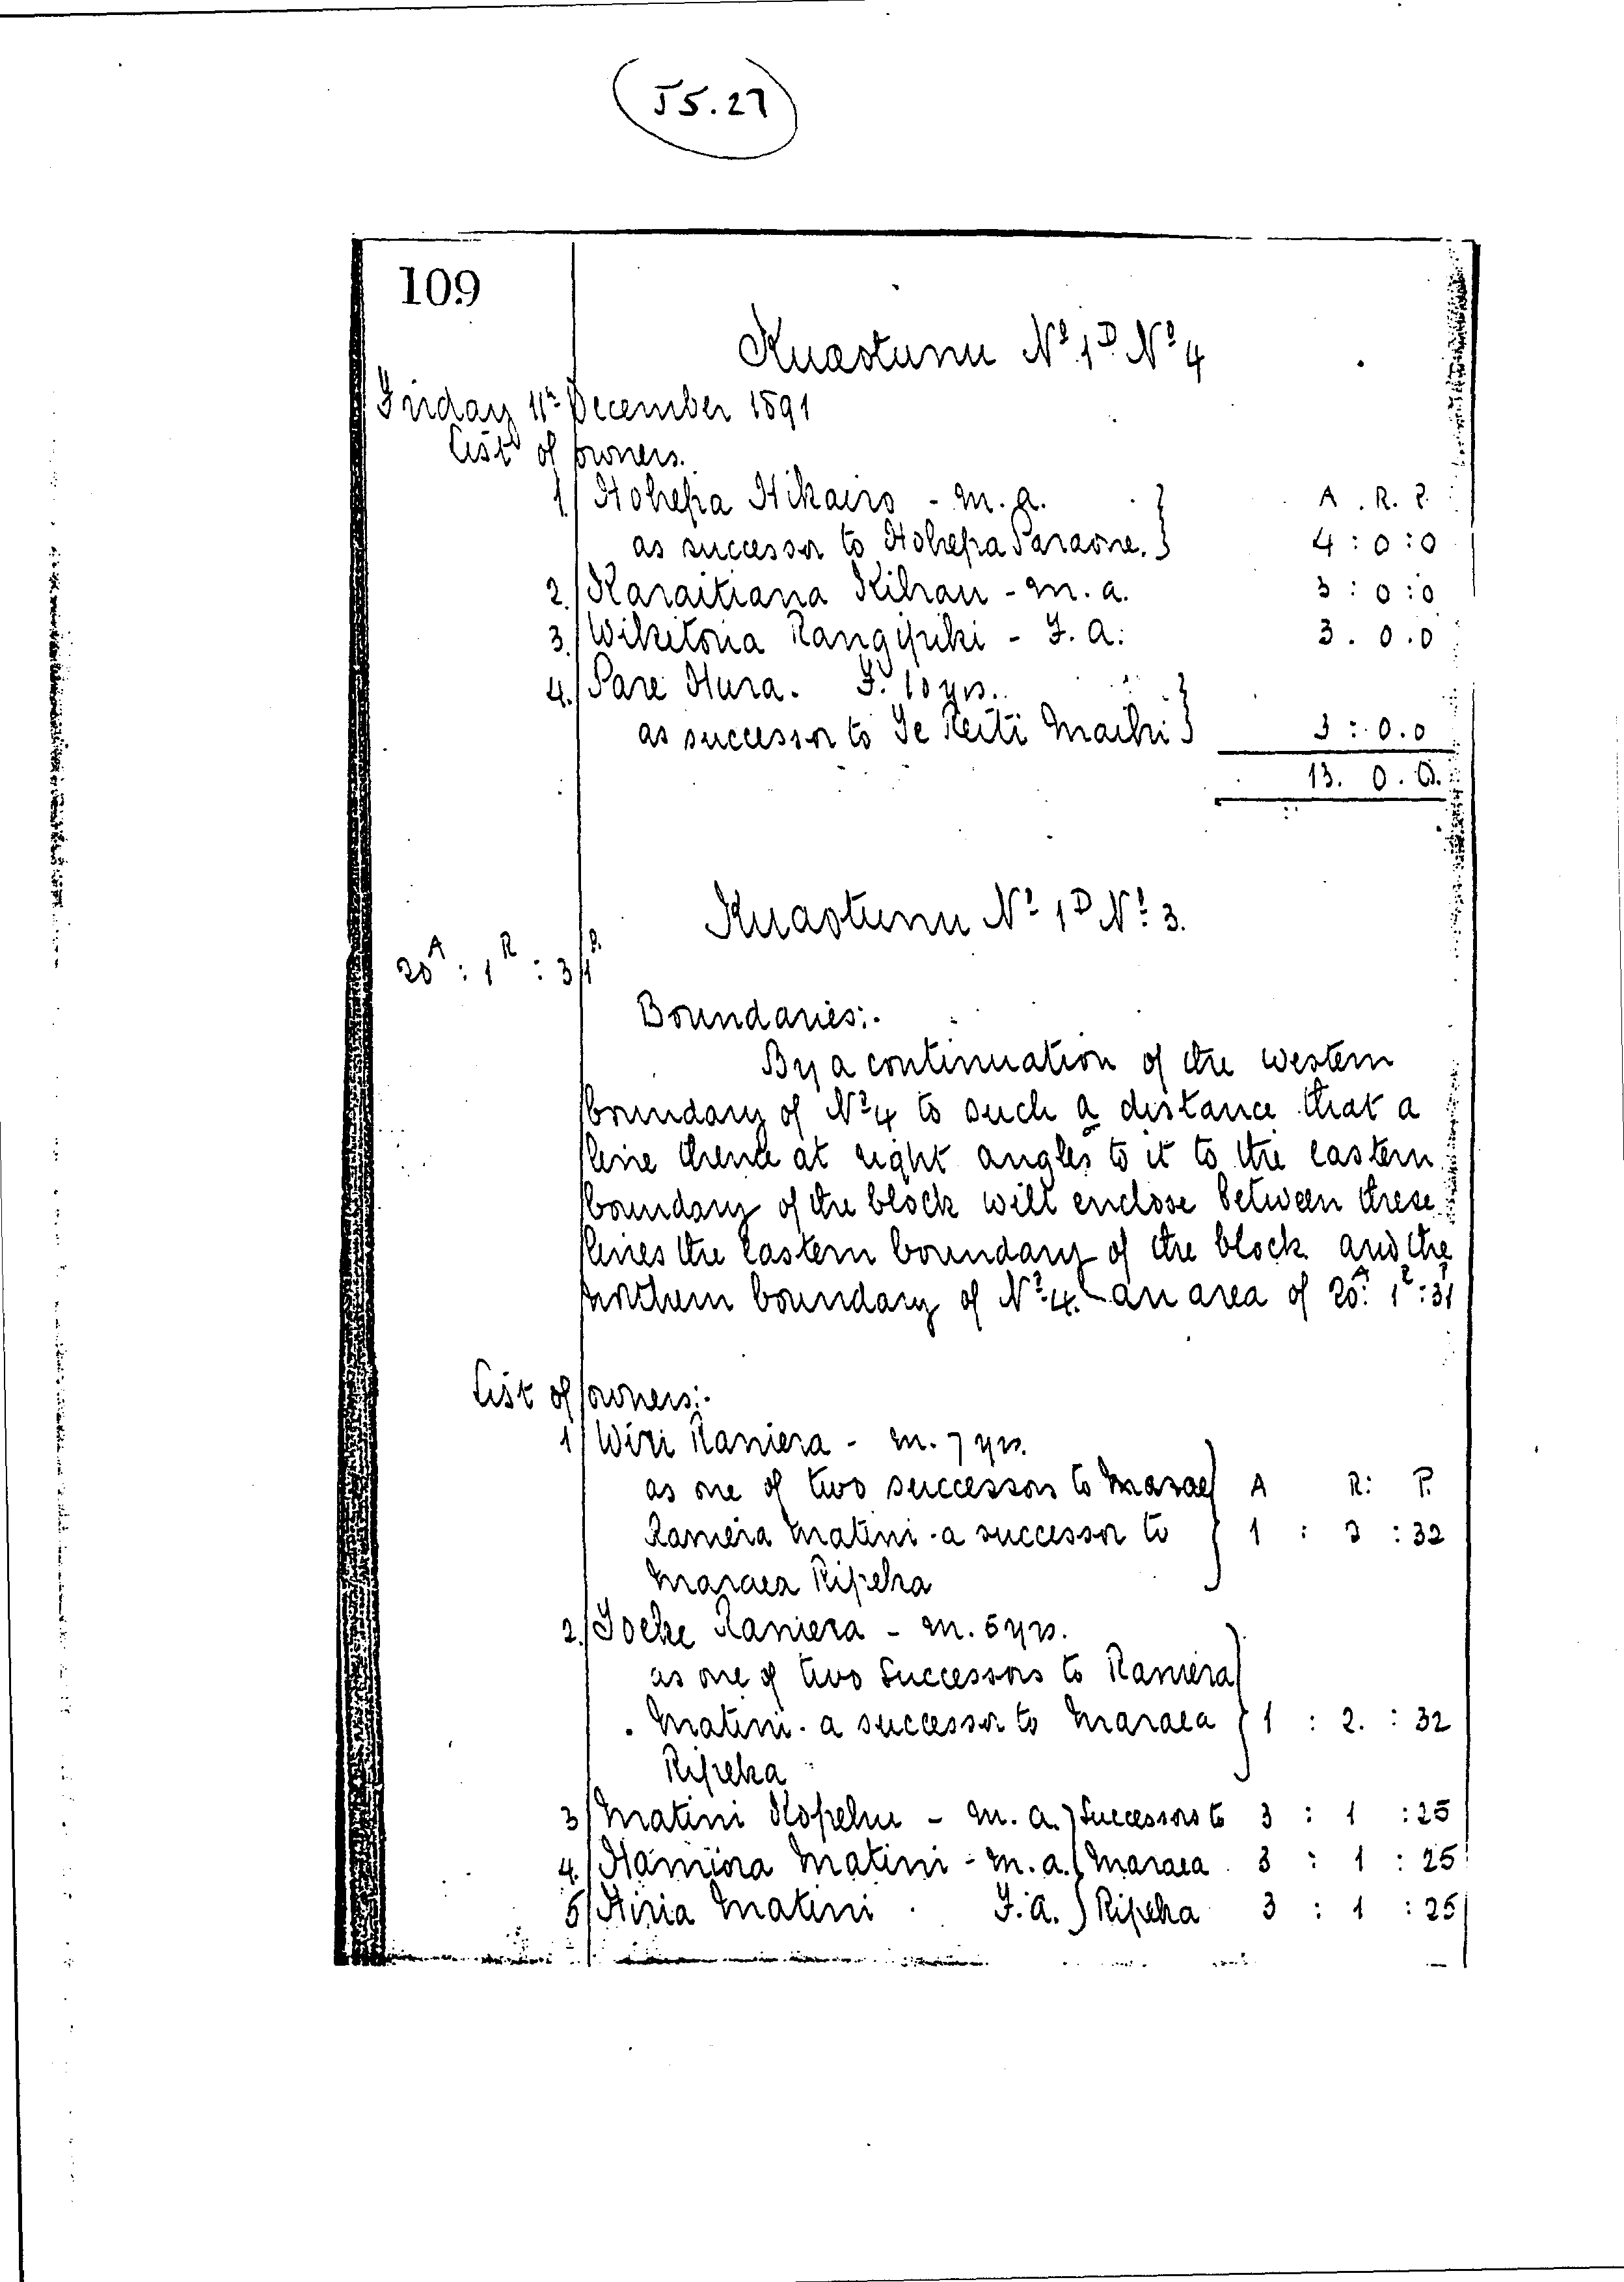 J5.27
109
Kuaotunu No. 1D No. 4
Friday 11th December 1891
List of owners.
1/ Hohepa Hikairo - m. a. A . R. P.
as successor to Hohepa Paraone. 4 : 0 : 0
2/ Karaitiana Kihau - m. a. 3 : 0 : 0
3/ Wikitoria Rangipiki - F. a. 3 . 0 . 0
4/ Pare Hura. F. 10 yrs.
as successor to Te Reiti Maihi 3 : 0 . 0
13. 0 . 0.
Kuaotunu No. 1D No. 3.
20A : 1R : 31P.
Boundaries:-
By a continuation of the western
boundary of No. 4 to such a distance that a
line thence at right angles to it to the eastern
boundary of the block will enclose between these
lines the Eastern boundary of the block and the
northern boundary of No. 4. an area of 20A. 1R : 31P
List of owners:-
1/ Wiri Raniera - m. 7 yrs.
as one of two successors to A R: P.
Raniera Matini - a successor to 1 : 3 : 32
Maraea Ripeka
2/ Raniera - m. 5 yrs.
as one of two Successors to Raniera
Matini - a successor to Maraea 1 : 2. : 32
Ripeka
3/ Matini Kopehu - m. a. Successors to 3 : 1 : 25
4/ Hamiora Matini - m. a. Maraea 3 : 1 : 25
5/ Hiria Matini F. a. Ripeka 3 : 1 : 25